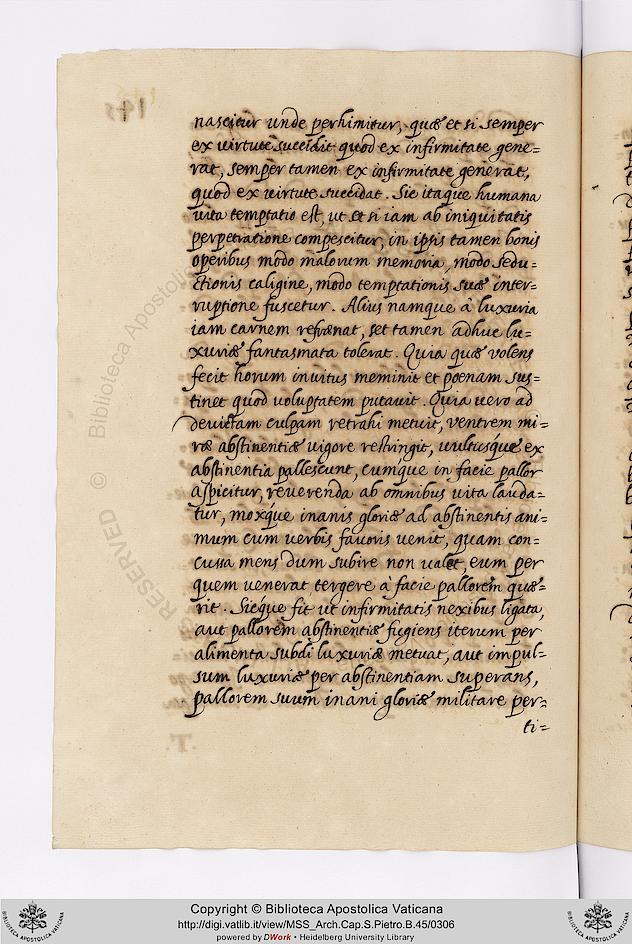 nascitur unde perhimitur, quæ et si semper
ex virtute succidit quod ex infirmitate gene=
rat, semper tamen ex infirmitate generat,
quod ex virtute succidat. Sic itaque humana
vita temptatio est, ut et si iam ab iniquitatis
perpetratione compescitur, in ipsis tamen bonis
operibus modo malorum memoria, modo sedu=
ctionis caligine, modo temptationis suæ inter=
ruptione fuscetur. Alius namque à luxuria
iam carnem refrænat, set tamen adhuc lu=
xuriæ fantasmata tolerat. Quia quæ volens
fecit horum invitus meminit et poenam sus=
tinet quod voluptatem putavit. Quia vero ad
devictam culpam retrahi metuit, ventrem mi=
ræ abstinentiæ vigore restringit, vultusque ex
abstinentia pallescunt, cumque in facie pallor
aspicitur, reverenda ab omnibus vita lauda=
tur, moxque inanis gloriæ ad abstinentis ani=
mum cum verbis favoris venit, quam con=
cussa mens dum subire non valet, eum per
quem venerat tergere à facie pallorem quæ=
rit. Sicque fit ut infirmitatis nexibus ligata,
aut pallorem abstinentiæ fugiens iterum per
alimenta subdi luxuriæ metuat, aut impul=
sum luxuriæ per abstinentiam superans,
pallorem suum inani gloriæ militare per=
ti=
RESERVED © Biblioteca Apostolica
Copyright © Biblioteca Apostolica Vaticana
http://digi.vatlib.it/view/MSS_Arch.Cap.S.Pietro.B.45/0306
powered by DWork • Heidelberg University Library